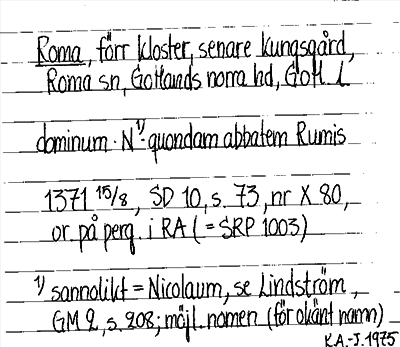 Roma, förr kloster, senare kungsgård,
Roma sn, Gotlands norra hd, Gotl. l
dominum · N¹⁾· quondam abbatem Rumis
1371 15/8, SD 10, s. 73, nr X 80,
or. på perg. i RA (= SRP 1003)
¹⁾ sannolikt = Nicolaum, se Lindström,
GM 2, s. 208; möjl. nomen (för okänt namn)
K.A.-J. 1975